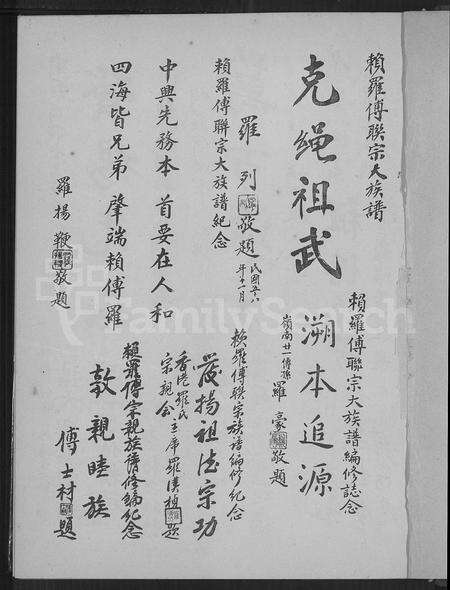 賴羅傅聯宗大族譜
克繩祖武
羅列敬題
民國五六年十一月
賴羅傅聯宗大族譜紀念
中興先務本 首要在人和
四海皆兄弟 肇端賴傅羅
羅揚鞭敬題
賴羅傅聯宗大族譜編修誌念
溯本追源
嶺南廿一傳孫羅豪敬題
賴羅傅聯宗族譜編修紀念
發揚祖德宗功
香港羅氏宗親會主席羅漢楨題
賴羅傅宗親族譜修編紀念
敦親睦族
傅士村題
FamilySearch